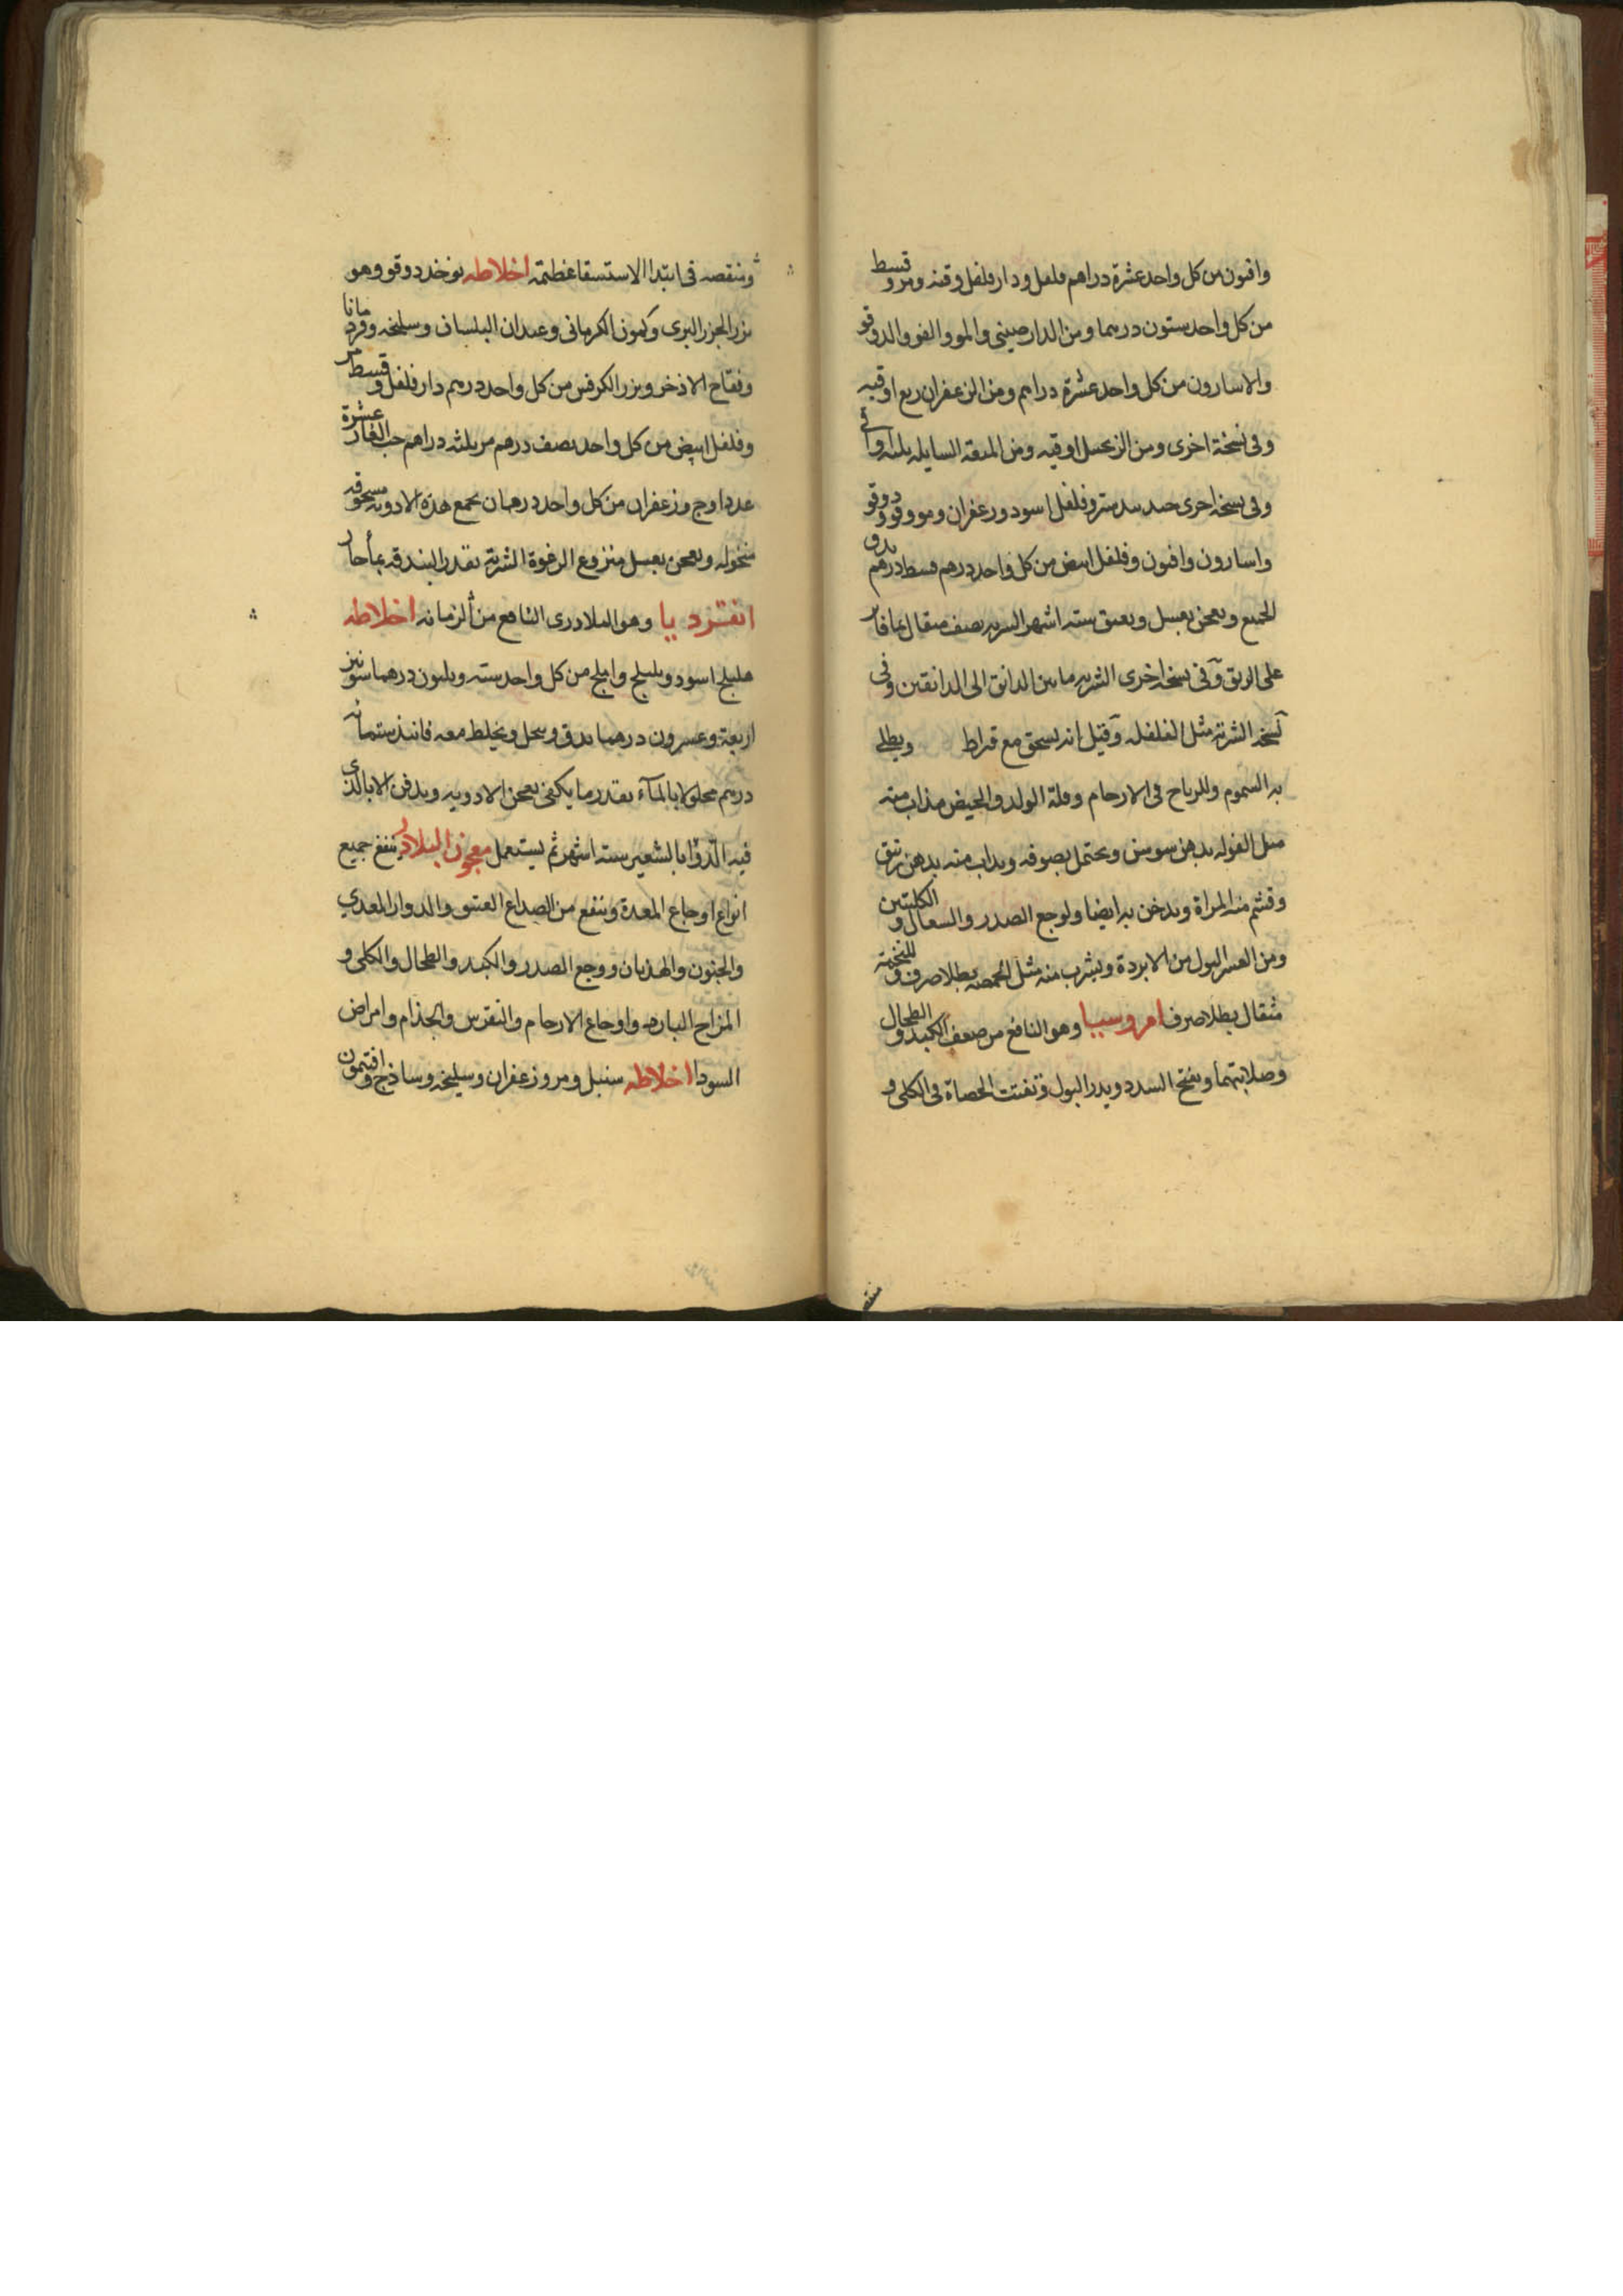 وافيون من كل واحد عشرة دراهم فلفل ودارفلفل وقنه ومرو قسط
من كل واحد ستون درهما ومن الدارصيني والمو والفو والدوقو
والاسارون من كل واحد عشرة دراهم ومن الزعفران ربع اوقيه
وفي نسخة اخرى ومن الزنجبيل اوقيه ومن الميعه السايله ثلثه اواقي
وفي نسخه اخرى وفلفل اسود وزعفران ومو وفو ودوقو
واسارون وافيون وفلفل ابيض من كل واحد درهم قسط درهم يدق
الجميع ويعجن بعسل ويعتق سته اشهر الشربه نصف مثقال بما فاتر
على الريق وفي نسخه اخرى الشربه ما بين الدانق الى الدانقين وفي
نسخه الشربه مثل الفلفله وقيل انه يسحق مع قيراط ويطلى
به السموم وللرياح في الارحام وقلة الولد والحيض يذاب منه
مثل الفوله بدهن سوسن ويحتمل بصوفه ويذاب منه بدهن زنبق
وقشم منه المراة ويدخن به ايضا ولوجع الصدر والسعال و الكليتين
ومن العسر البول من الابردة ويشرب منه مثل الحمصه بطلا صرف و للتخمة
مثقال بطلا صرف امروسيا وهو النافع من ضعف الكبد و الطحال
وصلابتهما ويفتح السدد ويدر البول وتفتت الحصاة في الكلى و
وينقصه في ابتدا الاستسقا عظيمة اخلاطه يوخذ دوقو وهو
بزر الجزر البري وكمون الكرماني وعيدان البلسان وسليخه وقرد مانا
وفقاح الاذخر وبزر الكرفس من كل واحد درهم دارفلفل و قسط مر
وفلفل ابيض من كل واحد نصف درهم مر ثلثه دراهم حب الغار عشرة
عددا وج وزعفران من كل واحد درهمان يجمع هذه الادويه مسحوقه
منخوله ويعجن بعسل منزوع الرغوة الشربة بقدر البندقه بماء حار
انقرد يا وهو البلادري النافع من الزمانه اخلاطه
هليلج اسود وبليلج واملج من كل واحد سته وثلثون درهما شونيز
اربعة وعشرون درهما يدق وينخل ويخلط معه فانيذ ستمائه
درهم محلولا بالماء بقدر ما يكفي يعجن الادويه ويدفن الانا الذي
فيه الدوا بالشعير سته اشهر ثم يستعمل معجون البلادر ينفع جميع
انواع اوجاع المعدة وينفع من الصداع العتيق والدوار المعدي
والجنون والهذيان ووجع الصدر والكبد والطحال والكلى و
المزاج البارد واوجاع الارحام والنقرس والجذام وامراض
السودا اخلاطه سنبل ومر وزعفران وسليخه وساذج وافتيمون